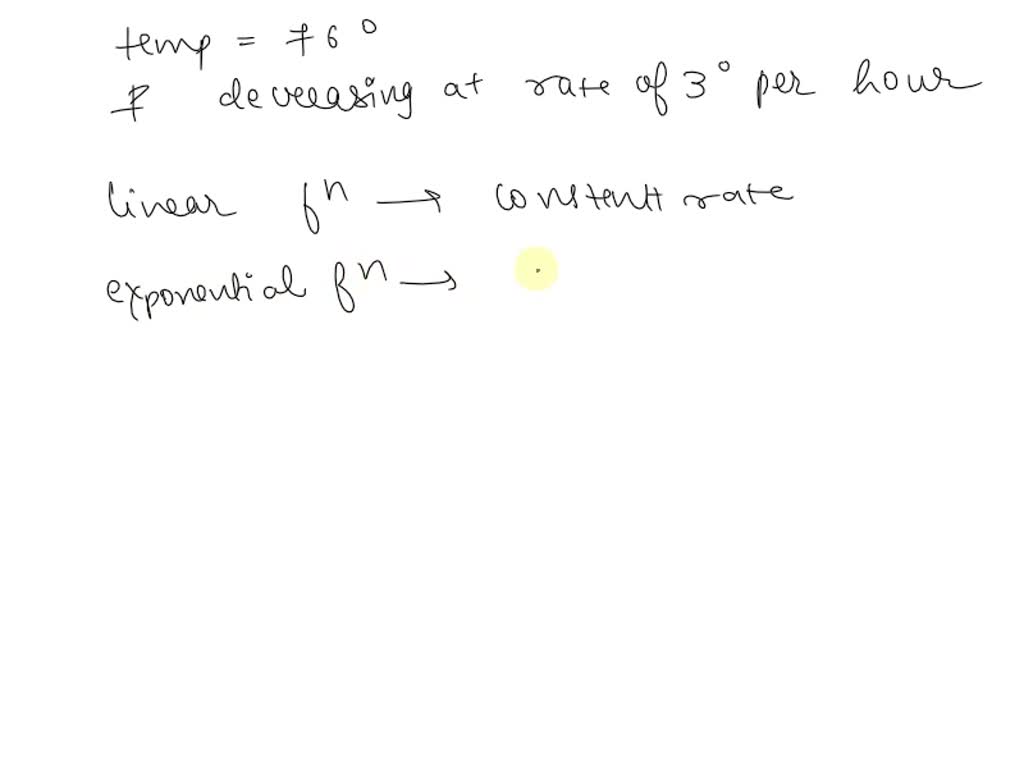 temp = 76°
& decreasing at rate of 3° per hour
linear fⁿ → constant rate
exponential fⁿ →